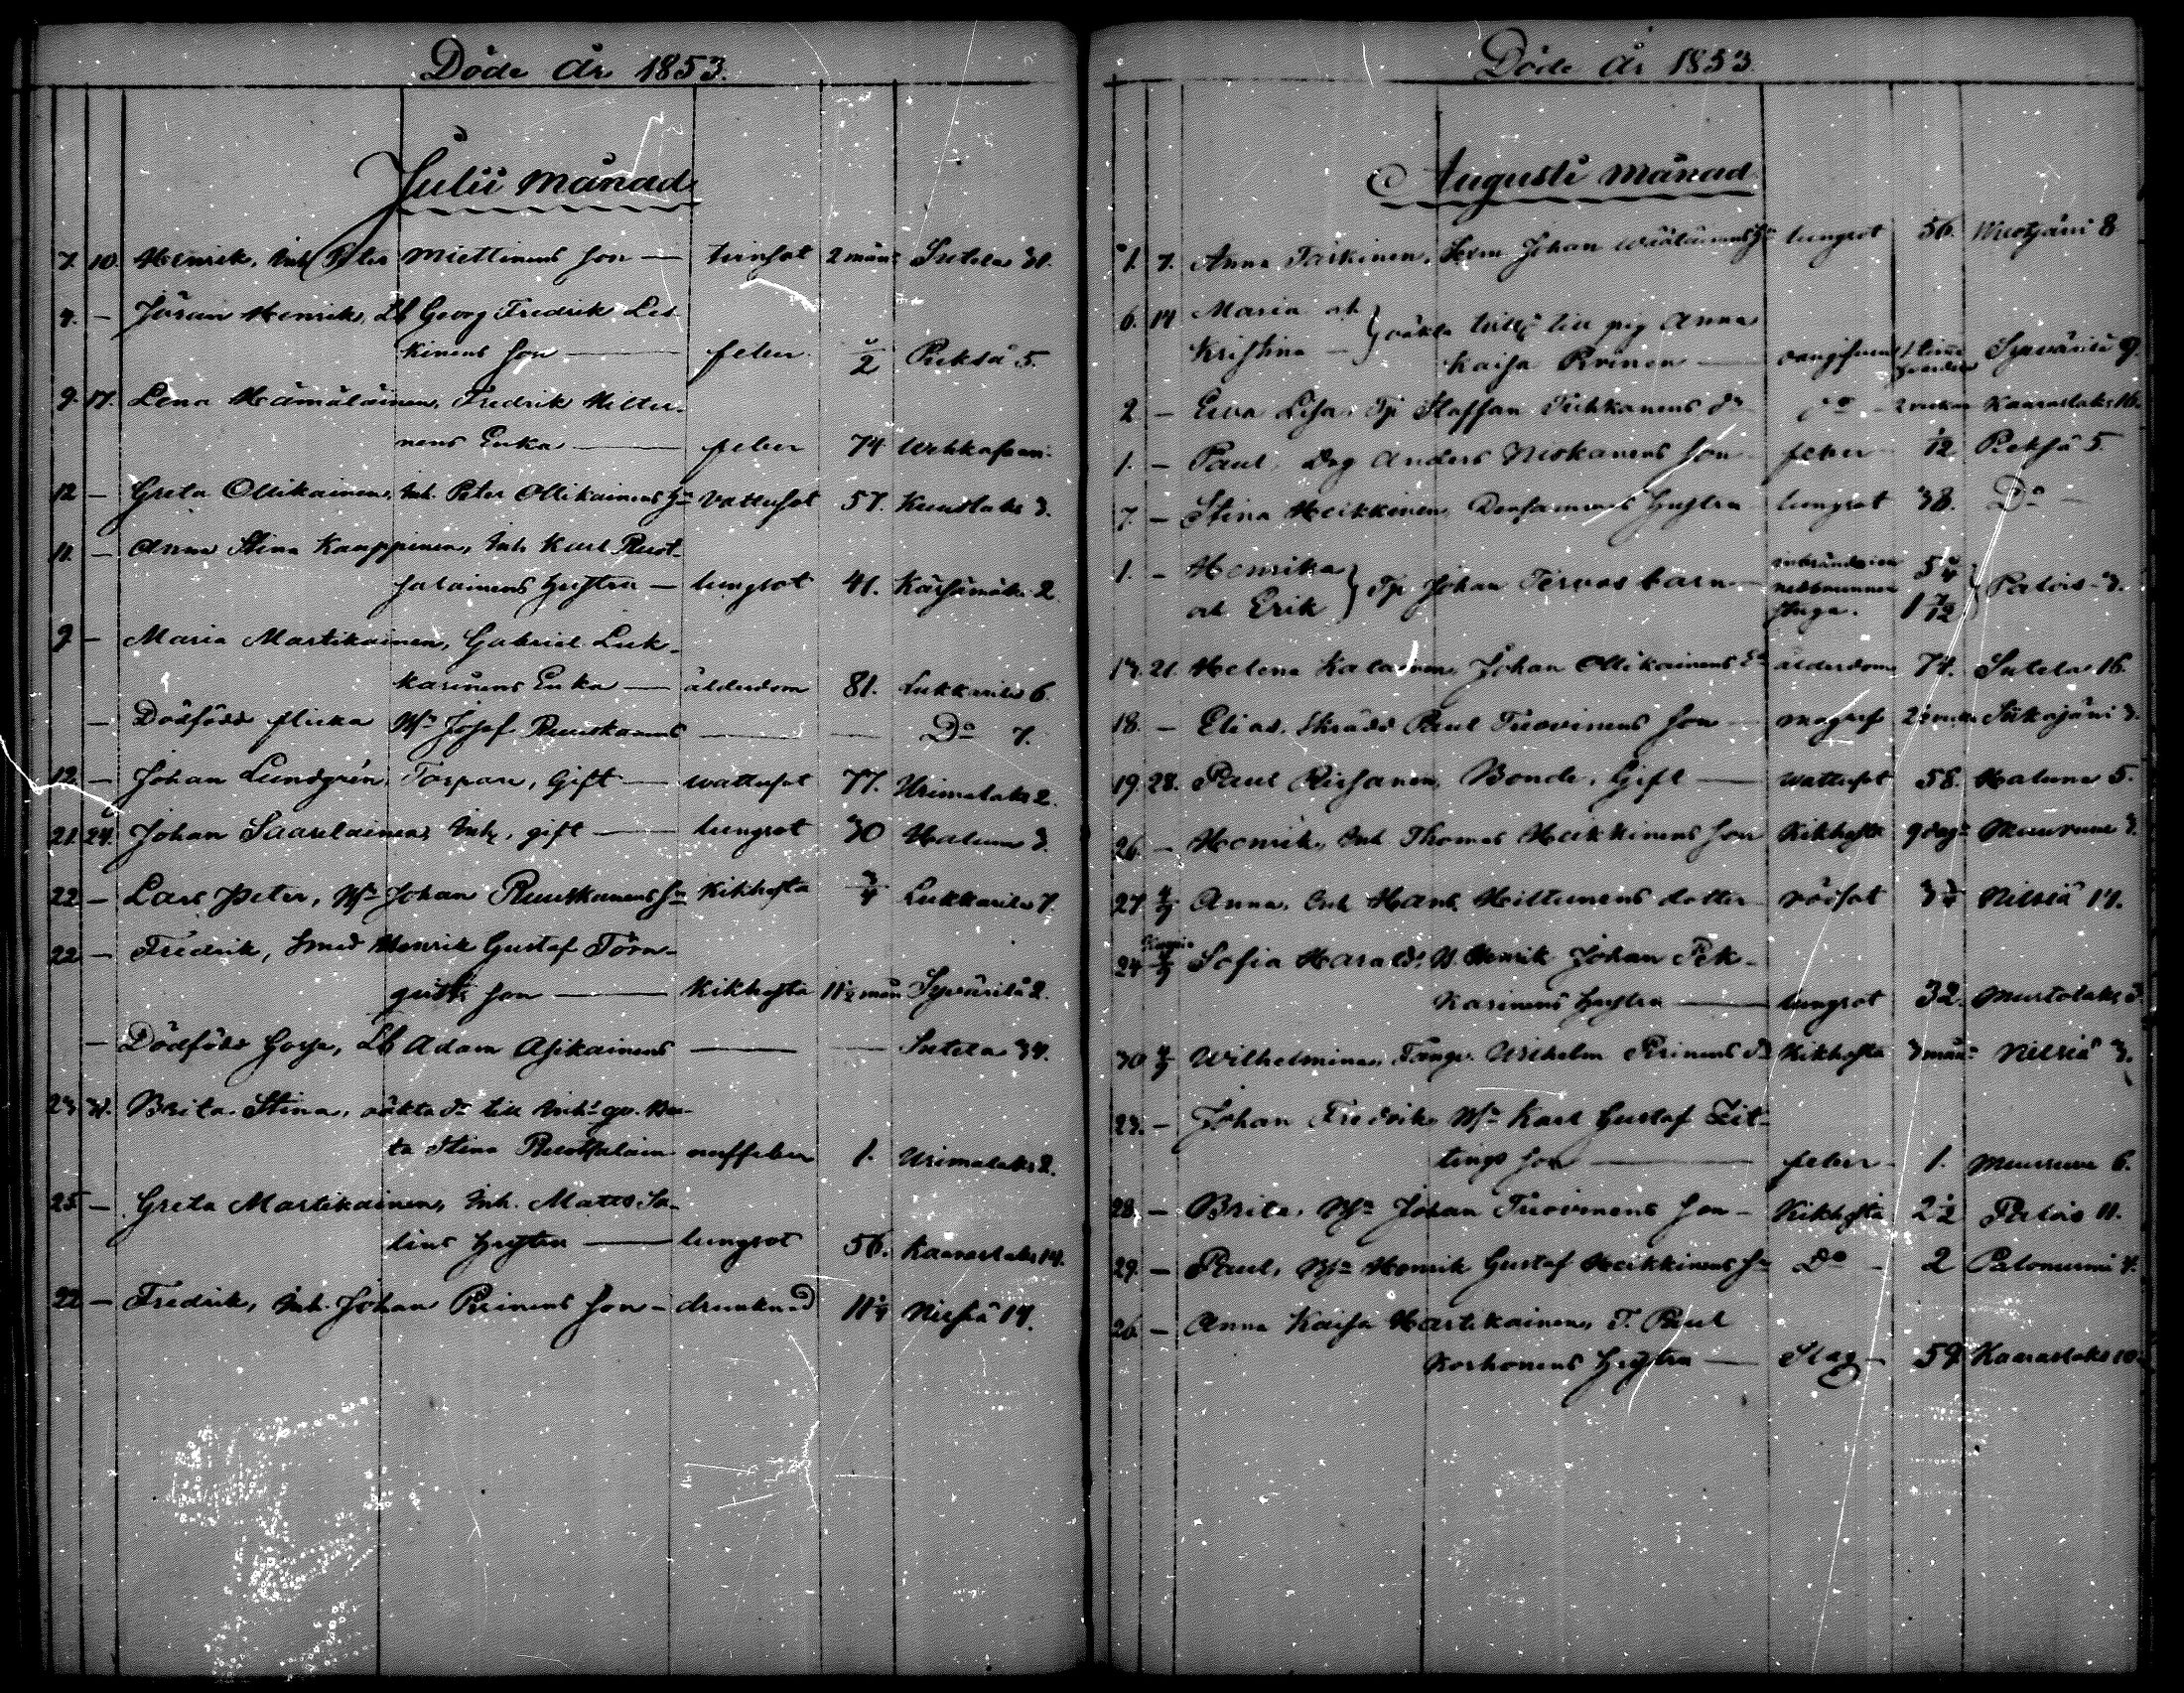 Döde år 1853.
Julii månad
7. 10. Henrik, Inh. Peter Miettinens son — tvinsot 2 mån. Sutela 31.
4. — Jöran Henrik, Lb Georg Fredrik Les
kinens son — feber ½ Reksä 5.
9. 17. Lena Hämäläinen, Fredrik Hilter-
nens Enka — feber 74
12 — Greta Ollikainen, Inh. Peter Ollikainens Hu vattusot 57. Kuuslaks 3.
11. — Anna Stina Kauppinen, Inh. Karl Ruot-
salainens Hustru — lungsot 41. Kärsämäki 2.
9 — Maria Martikainen, Gabriel Luk-
karinens Enka — ålderdom 81. Lukkarila 6.
— Dödfödd flicka Bs Josef Ruuskanens — — Do 7.
12. — Johan Lundgrén, Torpare, Gift — wattusot 77. 2.
21. 24. Johan Saarelainen, Inh., gift — lungsot 30 Haluna 3.
22 — Lars Peter, Bs Johan Ruuskanens sn Kikhosta ¾ Lukkarila 7.
22 — Fredrik, Smed Henrik Gustaf Törn-
quists son — Kikhosta 11½ mån Syvärilä 2.
— Dödfödd Gosse, Lb Adam Asikainens — — Sutela 34.
23 31. Brita Stina, oäkta dr till Inhs qv. Bri-
ta Stina Ruotsalain nerffeber 1. 2.
25 — Greta Martikainen, Inh. Matts Sa-
lins Hustru — lungsot 56. Kaaraslaks 14.
22 — Fredrik, Inh. Johan Pirinens son — drunknad 11¼ Nilsiä 17.
Döde år 1853.
Augusti månad
1. 7. Anna Taskinen, Johan Wäätäinens Hu lungsot 56. Muotjärvi 8
6. 14 Maria och
Kristina — } oäkta till pig Anna
Kaisa Pirinen — 1 timme Syvärilä 9.
2 — Eva Lisa, Tp Staffan Tuhkanens dr do 2 veckor Kaaraslaks 16.
1. — Paul, Drg Anders Niskanens son feber 1/12 Reksä 5.
7. — Stina Heikkinen, Densammes Hustru lungsot 38. Do —
1. — Henrika
och Erik } Tp Johan Tervos barn — innebrände i en nedbrunnen stuga. 5¼ 1 7/12 } Palois 3.
17. 21. Helena Kalainen, Johan Ollikainens Ea ålderdom 74. Sutela 16.
18. — Elias, Skrädd Paul Tuovinens son — magref Siikajärvi 3.
19 28. Paul Riisanen, Bonde, Gift — wattusot 58. Haluna 5.
26. — Henrik, Inh. Thomas Heikkinens son Kikhosta 9 dagr Muuruvesi 3.
27. 4/9 Anna, Inh. Hans Hiltunens dotter rödsot 3¾ Nilsiä 17.
Kuopio
24 4/9 Sofia Harald, B. Henrik Johan Pek-
karinens Hustru — lungsot 32. Murtolaks 3.
30 4/9 Wilhelmina, Fångv. Wilhelm Pirinens dr Kikhosta 3 mån. Nilsiä 3.
23. — Johan Fredrik, Bs Karl Gustaf Zit-
tings son — feber 1. Muuruvesi 6.
28 — Brita, Bs Johan Tuovinens son — Kikhosta 2½ Palois 11.
29. — Paul, Bs Henrik Gustaf Heikkinens sn Do — 2 Palonurmi 7.
26 — Anna Kaisa Hartikainen, T. Paul
Korhonens Hustru — Slag — 59. Kaaraslaks 10.